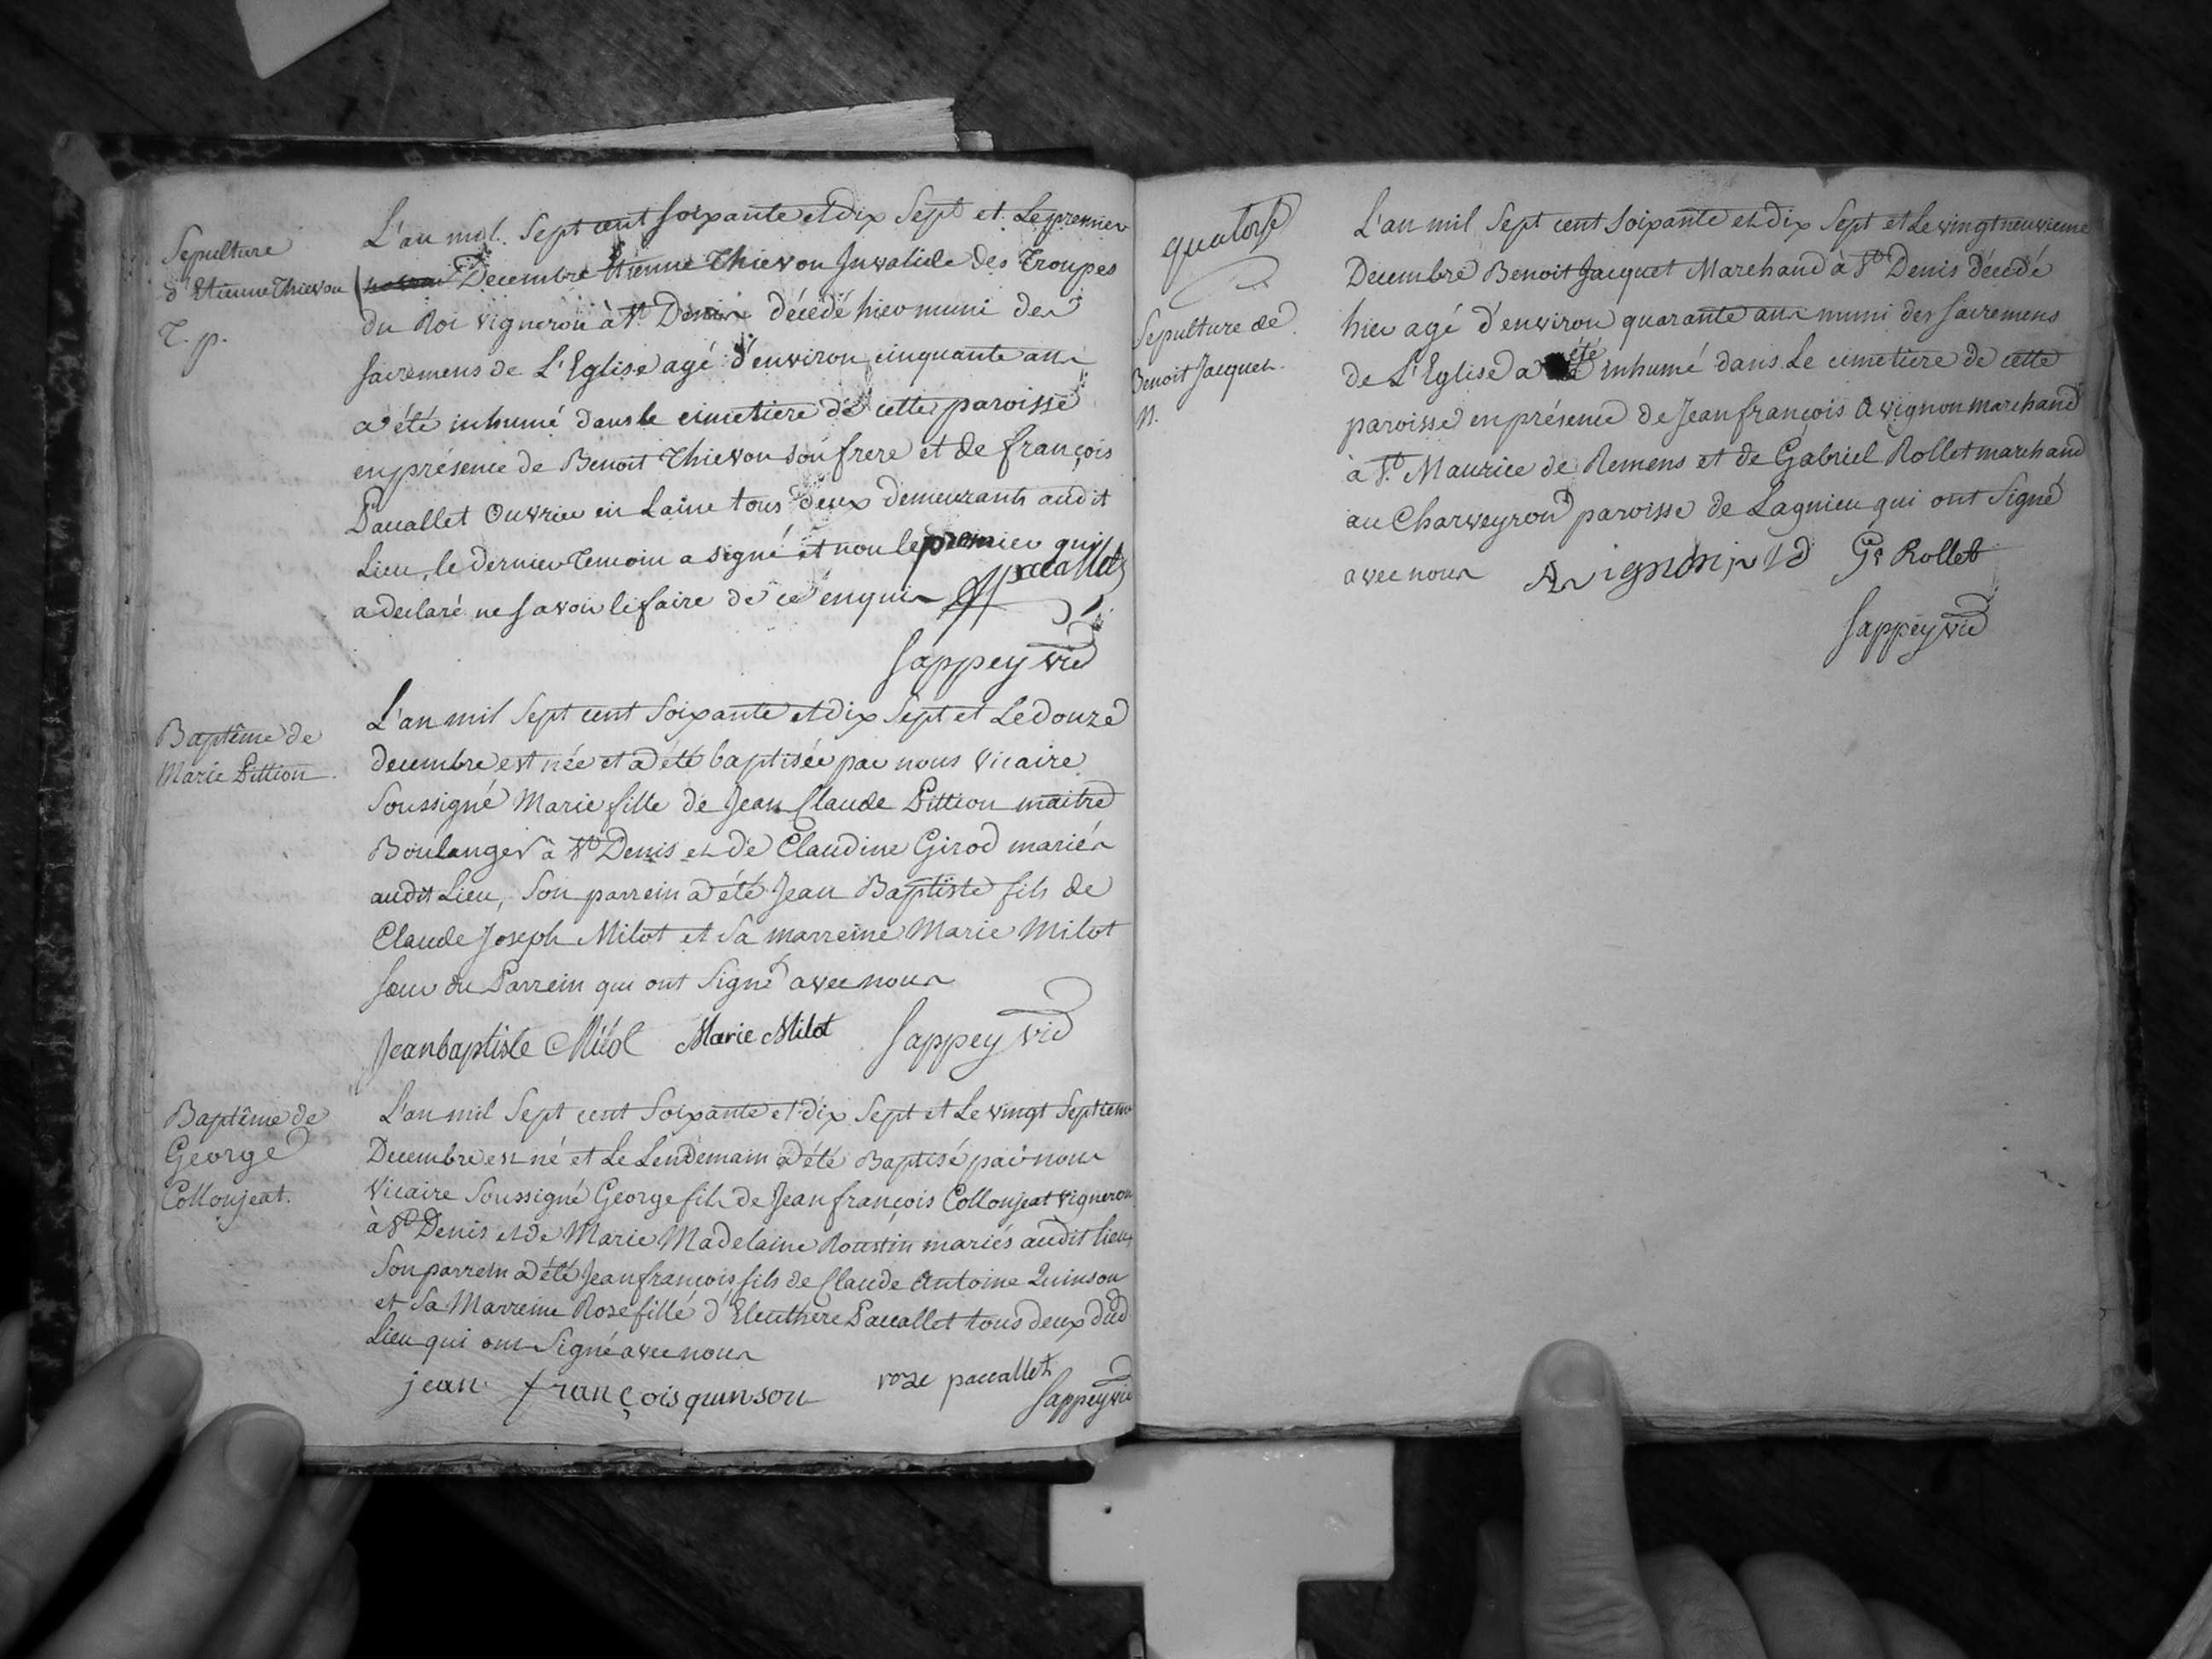 Sepulture
d'Etienne Thievon
T. p.
L'an mil Sept cent soixante et dix Sept et Le premier
Decembre Etienne Thievon Invalide des Troupes
du Roi vigneron à St. Denis décédé hier muni des
sacremens de L'Eglise agé d'environ cinquante ans
a été inhumé dans le cimetiere de cette paroisse
en présence de Benoit Thievon son frere et de françois
Paccallet Ouvrier en Laine tous deux demeurants audit
Lieu, le dernier temoin a signé et non le premier qui
a declaré ne savoir le faire de ce enquis
Sappey vic
Baptême de
Marie Pittion
L'an mil Sept cent Soixante et dix Sept et Le douze
decembre est née et a été baptisée par nous vicaire
Soussigné Marie fille de Jean Claude Pittion maitre
Boulanger à St Denis et de Claudine Girod mariés
audit Lieu, Son parrein a été Jean Baptiste fils de
Claude Joseph Milot et Sa marreine Marie Milot
sœur du Parrein qui ont Signé avec nous
Jean baptiste Milot Marie Milot Sappey vic
Baptême de
George
Collonjeat.
L'an mil Sept cent Soixante et dix Sept et Le vingt Septieme
Decembre est né et Le Lendemain a été Baptisé par nous
Vicaire Soussigné George fils de Jean françois Collonjeat vigneron
à St Denis et de Marie Madelaine Roustin mariés audit lieu,
Son parrein a été Jean françois fils de Claude Antoine Quinson
et Sa Marreine Rose fille d'Eleuthere Paccallet tous deux dud
Lieu qui ont Signé avec nous
jean françois quinson roze paccallet
Sappey vic
quatorse
Sepulture de
Benoit Jacquet.
N.
L'an mil Sept cent Soixante et dix Sept et Le vingt neuvieme
Decembre Benoit Jacquet Marchand à St Denis décedé
hier agé d'environ quarante ans muni des sacremens
de L'Eglise a été inhumé dans Le cimetiere de cette
paroisse en présence de Jean françois Avignon marchand
à St. Maurice de Remens et de Gabriel Rollet marchand
au Charveyron paroisse de Lagnieu qui ont Signé
avec nous Avignon Gel Rollet
Sappey vic